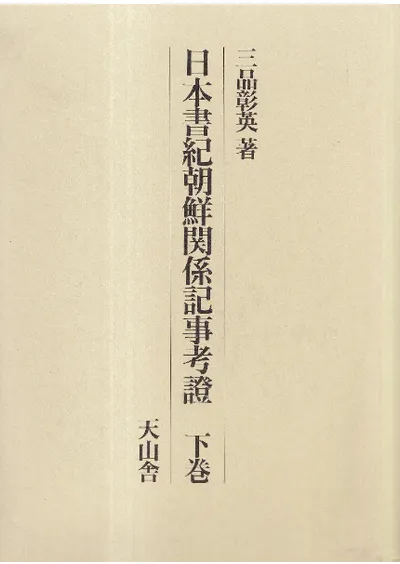 三品彰英 著
日本書紀朝鮮関係記事考證 下巻
天山舎